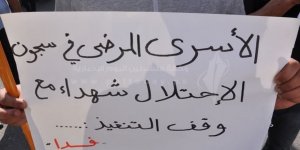 الأسرى المرضى في سجون
الإحتلال شهداء مع
وقف التنفيذ ......
فدا